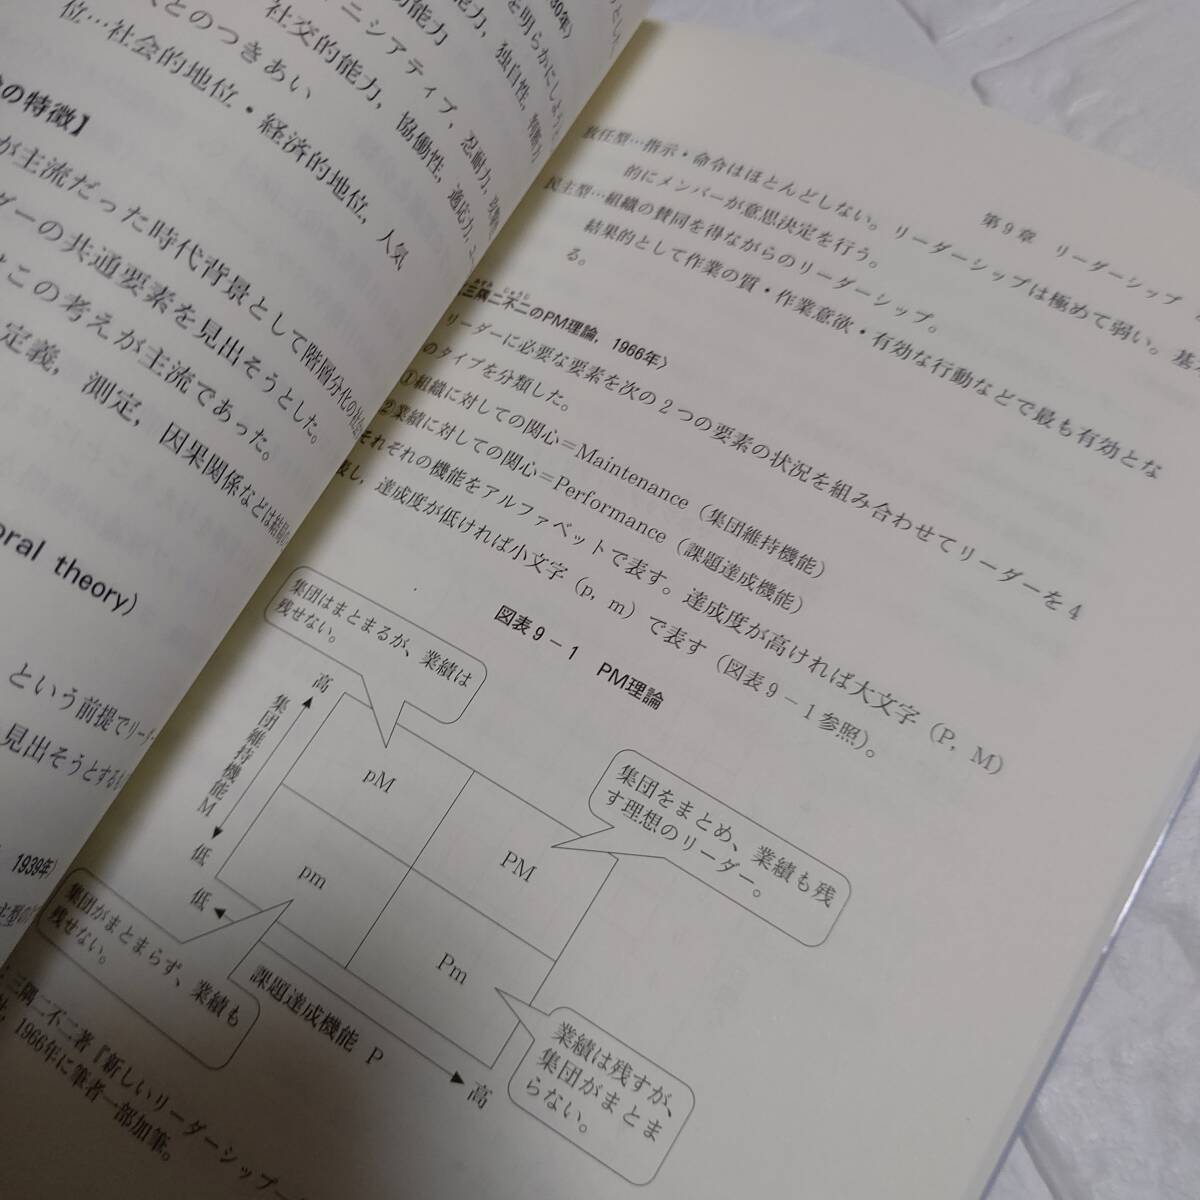 30年〉
を明らかにしよう
独自性，判断力
能力
ニシアティブ，忍耐力，
社交的能力，協働性，適応力，
とのつきあい
位…社会的地位・経済的地位，人気
の特徴】
が主流だった時代背景として階層分化の社会
ダーの共通要素を見出そうとした。
この考えが主流であった。
定義，測定，因果関係などは結局
oral theory）
という前提でリーダー
見出そうとする
1939年〉
第9章　リーダーシップ
放任型…指示・命令はほとんどしない。リーダーシップは極めて弱い。基本
的にメンバーが意思決定を行う。
民主型…組織の賛同を得ながらのリーダーシップ。
結果的として作業の質・作業意欲・有効な行動などで最も有効とな
る。
三隅二不二のPM理論，1966年〉
リーダーに必要な要素を次の2つの要素の状況を組み合わせてリーダーを4
のタイプを分類した。
①組織に対しての関心＝Maintenance（集団維持機能）
②業績に対しての関心＝Performance（課題達成機能）
それぞれの機能をアルファベットで表す。達成度が高ければ大文字（P, M）
表し，達成度が低ければ小文字（p, m）で表す（図表9－1参照）。
図表9－1　PM理論
集団はまとまるが、業績は
残せない。
高
集団維持機能M
低
pM
PM
pm
Pm
集団をまとめ、業績も残
す理想のリーダー。
集団がまとまらず、業績も
残せない。
低
課題達成機能　P
高
業績は残すが、
集団がまとま
らない。
三隅二不二著『新しいリーダーシップ―
1966年に筆者一部加筆。